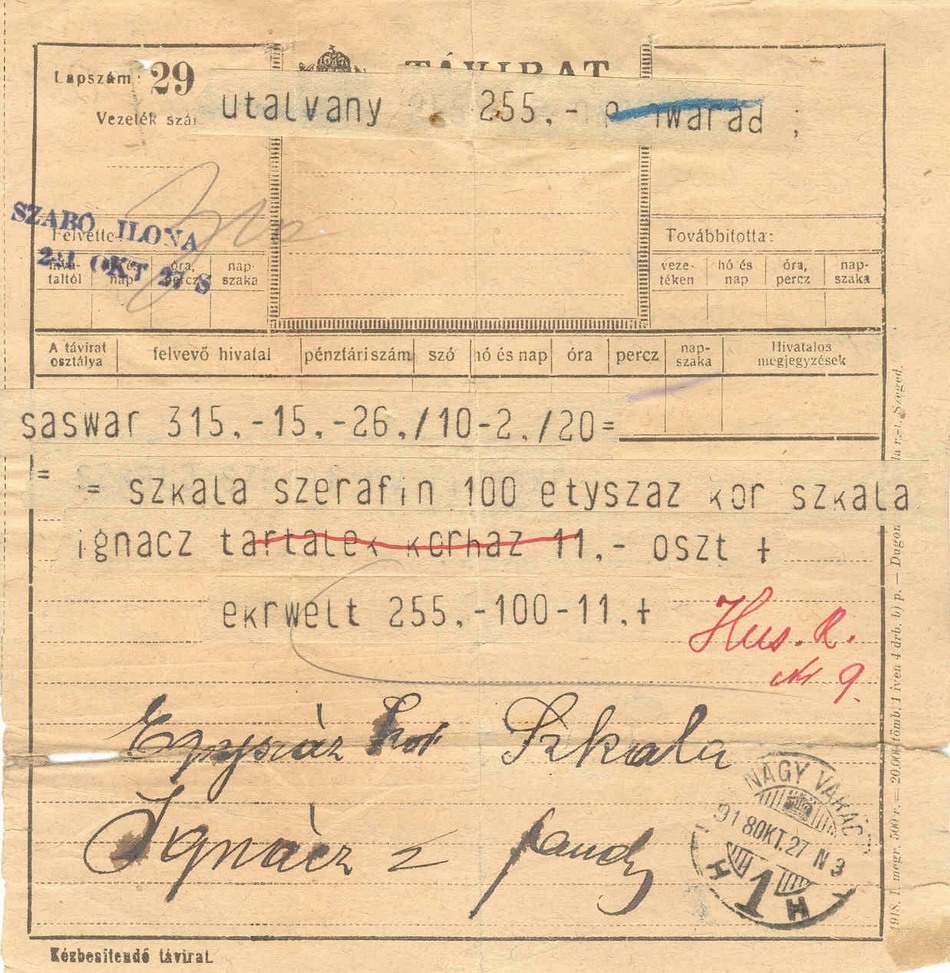 Lapszám: 29
TÁVIRAT
Vezeték
utalvany 255,- nwarad ;
SZABÓ ILONA
Felvette
OKT 27
óra, percz
nap-szaka
Továbbította:
veze-téken
hó és nap
óra, percz
nap-szaka
A távirat osztálya
felvevő hivatal
pénztári szám
szó
hó és nap
óra
percz
nap-szaka
Hivatalos megjegyzések
saswar 315,-15,-26,/10-2,/20=
= szkala szerafin 100 etyszaz kor szkala
ignacz tartalek korhaz 11,- oszt +
ekrwelt 255,-100-11,+
Hus. R.
Nr 9.
Egyszáz kor Szkala
Ignácz
NAGY VÁRAD
918 OKT. 27 N 3
H 1 H
Kézbesítendő távirat.
1918. I. megr. 500 r. — 20.000 tömb, 1 iven 4 drb. b) p. — Dugon
la r.-t. Szeged.